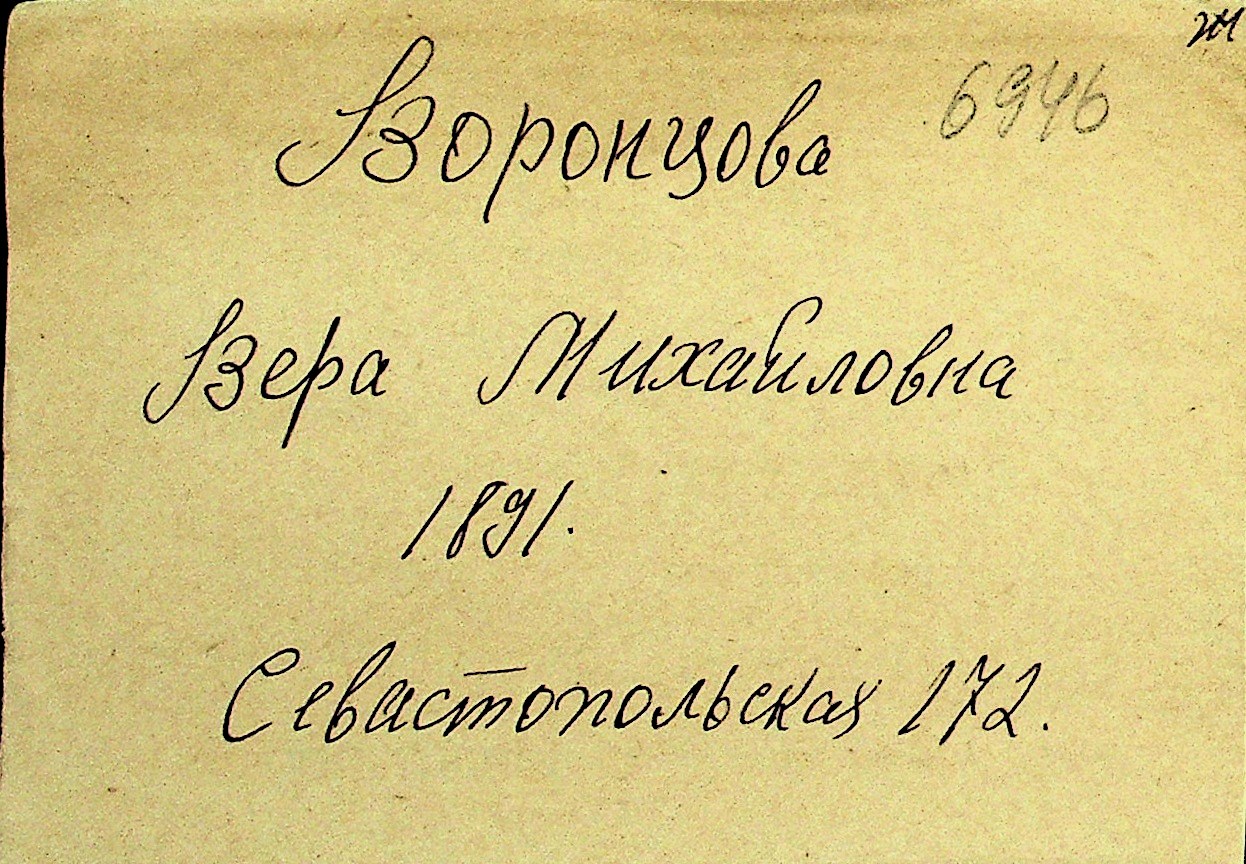 Воронцова 6946
Вера Михайловна
1891.
Севастопольская 172.